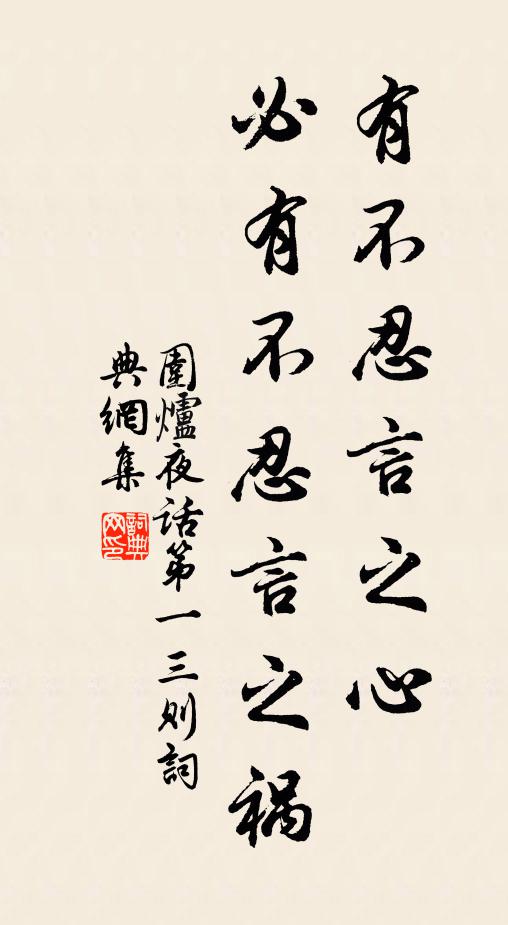 有不忍言之心
必有不忍言之祸
圍爐夜话第一三则詞
典網集
詞典
网印